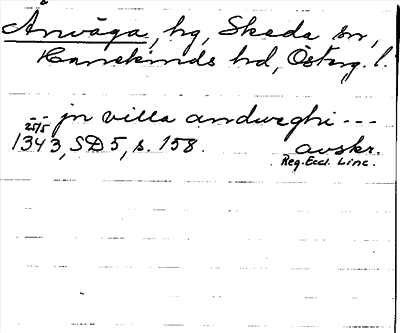 Årväga, hg, Skeda sn,
Hanekinds hd, Österg. l.
-- jn villa andweghi ---
25/5 1343, SD 5, s. 158. avskr.
Reg. Eccl. Linc.